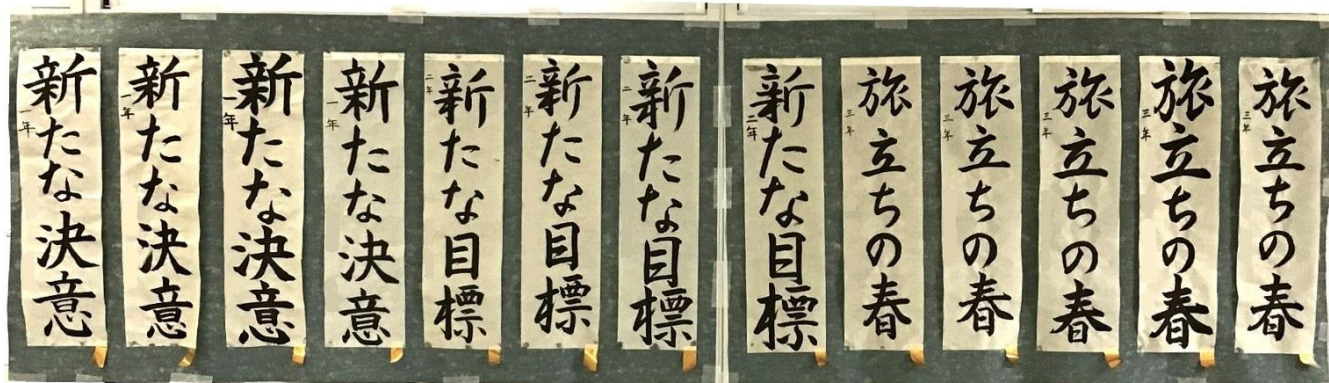 新たな決意
一年
新たな決意
一年
新たな決意
一年
新たな決意
一年
新たな目標
二年
新たな目標
二年
新たな目標
二年
新たな目標
二年
旅立ちの春
三年
旅立ちの春
三年
旅立ちの春
三年
旅立ちの春
三年
旅立ちの春
三年